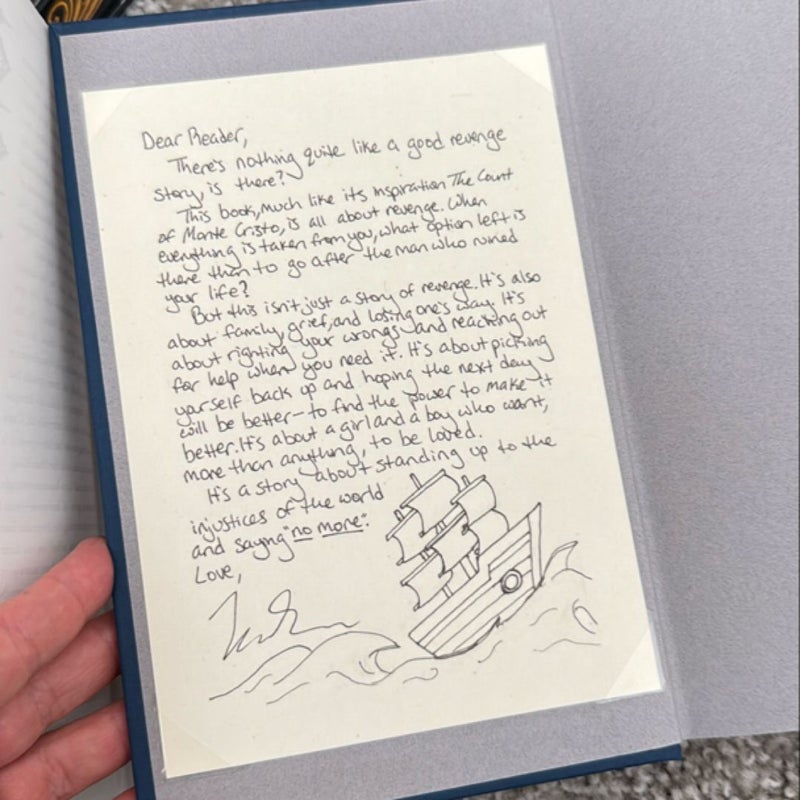 Dear Reader,
There's nothing quite like a good revenge
story, is there?
This book, much like its inspiration The Count
of Monte Cristo, is all about revenge. When
everything is taken from you, what option left is
there than to go after the man who ruined
your life?
But this isn't just a story of revenge. It's also
about family, grief, and losing one's way. It's
about righting your wrongs and reaching out
for help when you need it. It's about picking
yourself back up and hoping the next day
will be better—to find the power to make it
better. It's about a girl and a boy who want,
more than anything, to be loved.
It's a story about standing up to the
injustices of the world
and saying "no more".
Love,